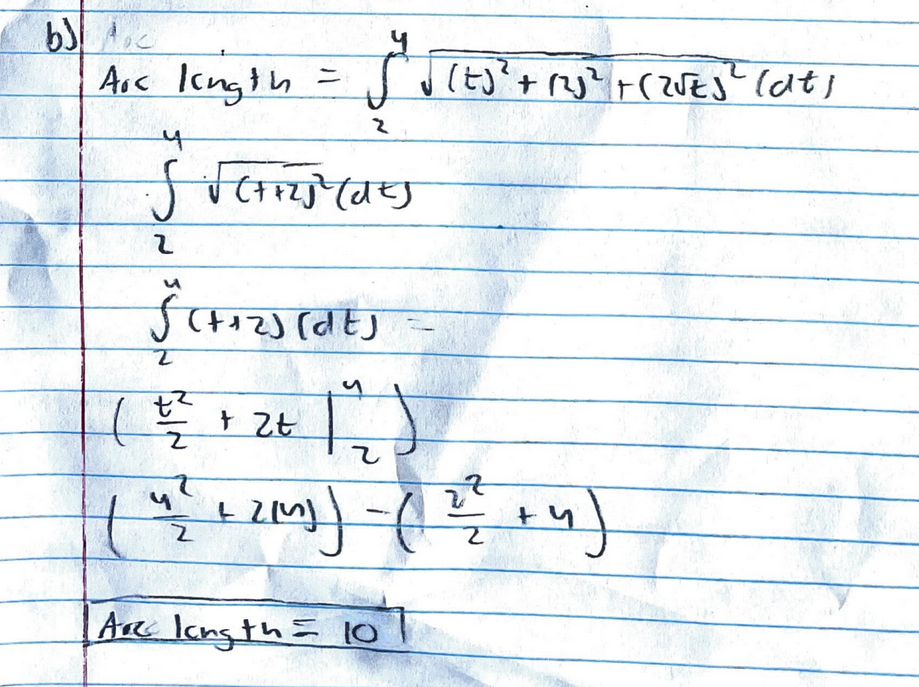 b) Arc
Arc length = ∫₂⁴ √((t)² + (2)² + (2√t)²) (dt)
∫₂⁴ √((t+2)²) (dt)
∫₂⁴ (t+2) (dt) =
( t²/2 + 2t |₂⁴ )
( 4²/2 + 2(4) ) - ( 2²/2 + 4 )
Arc length = 10